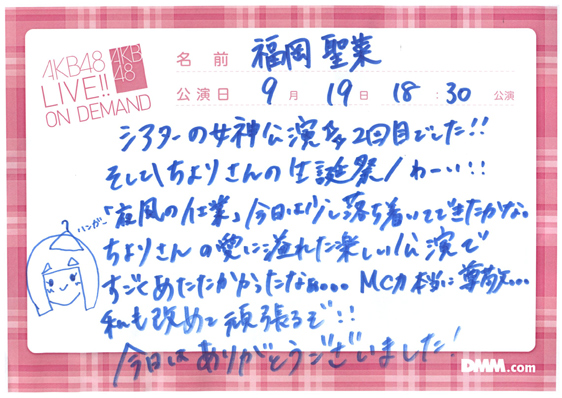 AKB48
LIVE!!
ON DEMAND
AKB
48
名前 福岡 聖菜
公演日 9月 19日 18:30 公演
シアターの女神公演 2回目でした!!
そして\ちよりさんの生誕祭/わーい!!
「夜風の仕業」今日は少し落ち着いてできたかな。
ハンガー
ちよりさんの愛に溢れた楽しい公演で
すごくあたたかかったなぁ。。。MC力本当に尊敬…
私も改めて頑張るぞ!!
今日はありがとうございました!
DMM.com